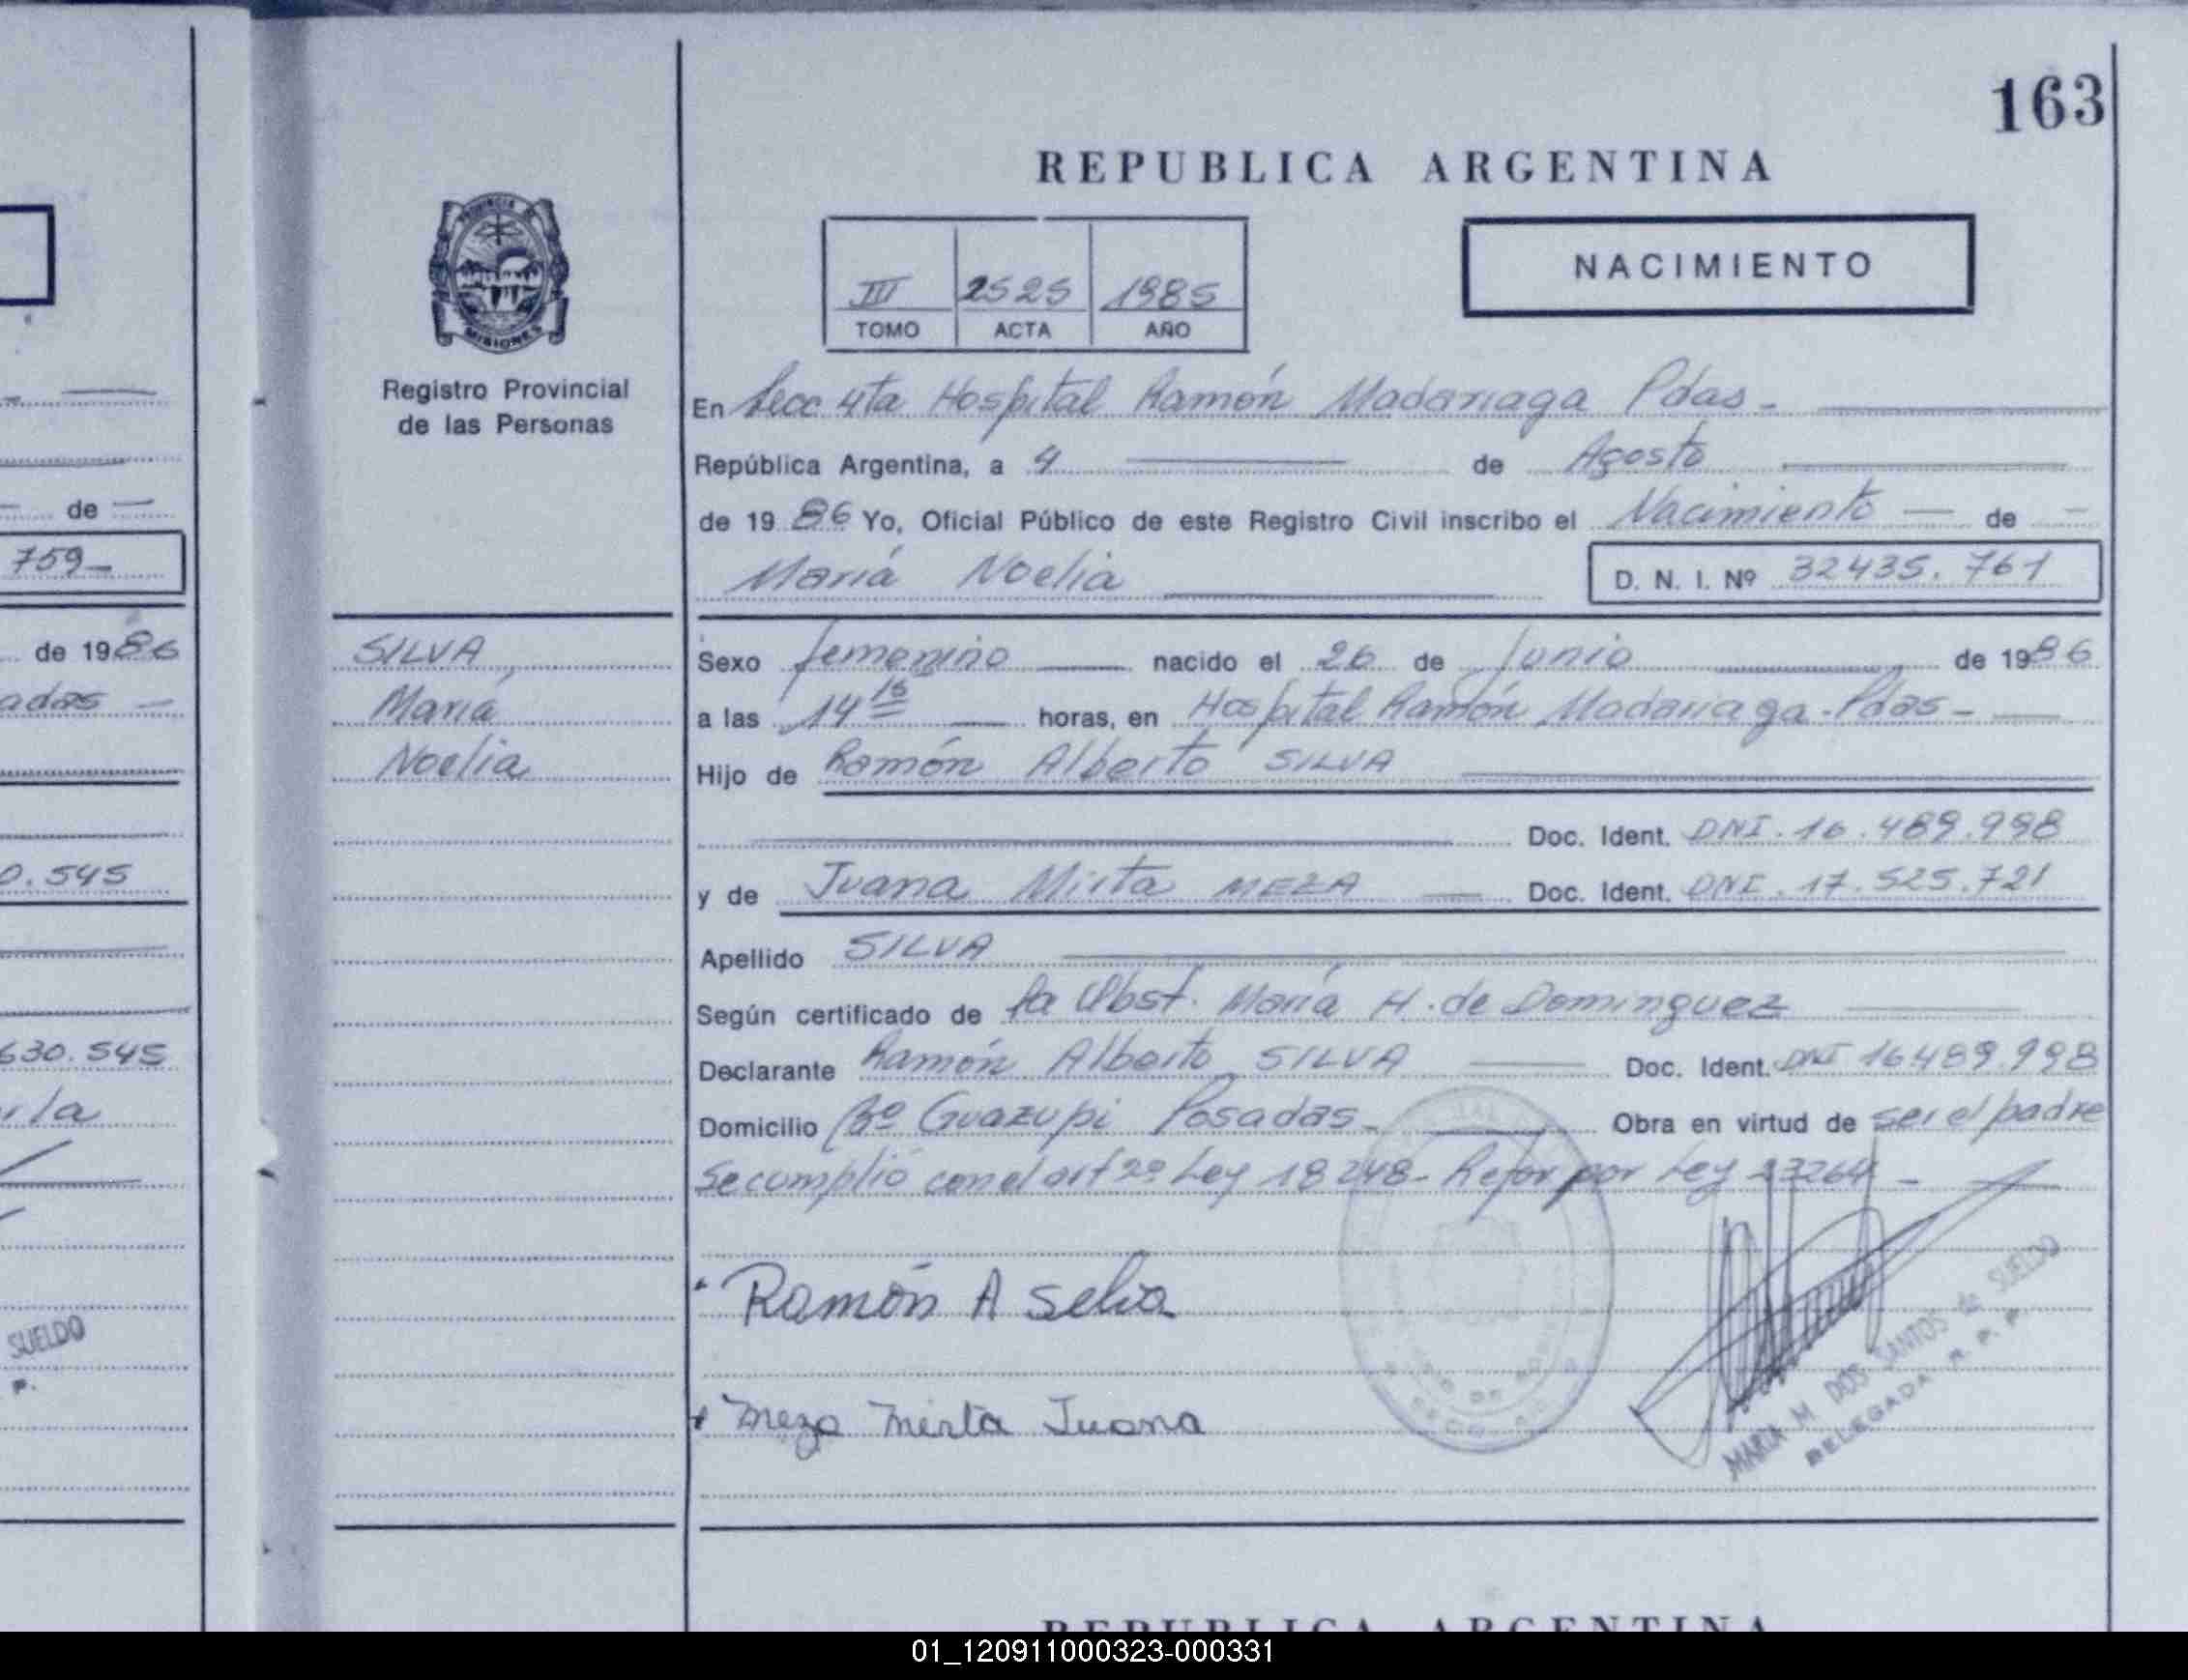 163
REPUBLICA ARGENTINA
PROVINCIA DE
MISIONES
III 2525 1985
TOMO ACTA AÑO
NACIMIENTO
Registro Provincial
de las Personas
En Secc 4ta Hospital Ramón Madariaga Pdas-
República Argentina, a 4 de Agosto
de 1986 Yo, Oficial Público de este Registro Civil inscribo el Nacimiento de
María Noelia D. N. I. Nº 32435.761
SILVA,
María
Noelia
Sexo femenino nacido el 26 de Junio de 1986
a las 14 15 horas, en Hospital Ramón Madariaga-Pdas-
Hijo de Ramón Alberto SILVA
Doc. Ident. DNI.16.489.998
y de Juana Mirta MEZA Doc. Ident. DNI.17.525.721
Apellido SILVA
Según certificado de la Obst. María H. de Dominguez
Declarante Ramón Alberto SILVA Doc. Ident. DNI 16489.998
Domicilio Bº Guazupi Posadas- Obra en virtud de ser el padre
Se cumplió con el art 2º Ley 18248- Refor por Ley 23264-
Ramón A Selva
Meza Mirta Juana
MARIA M. DOS SANTOS de SUELDO
DELEGADA R. P. P.
de
759-
de 1986
adas
0.545
630.545
la
SUELDO
P.
REPUBLICA ARGENTINA
01_120911000323-000331